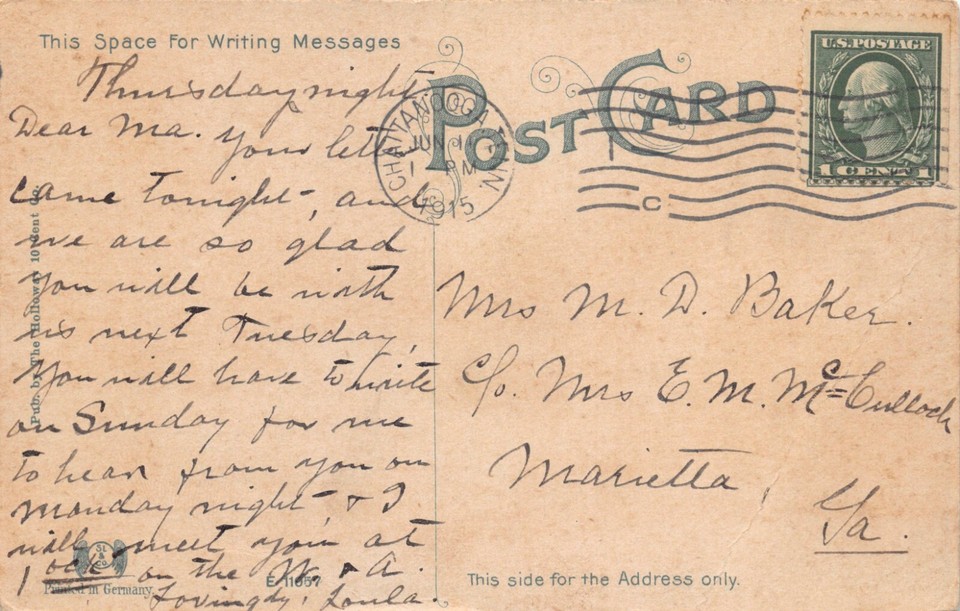 This Space For Writing Messages
Thursday night
Dear Ma. Your letter
came tonight, and
we are so glad
you will be with
us next Tuesday,
You will have to write
on Sunday for me
to hear from you on
Monday night, & I
will meet you at
1 ock on the W. & A.
Lovingly, Loula.
Pub. by The Holloway 10 cent Co.
Printed in Germany.
E 11657
POST CARD
CHATTANOOGA
JUN
PM
1915
C
U.S. POSTAGE
1 CENT 1
Mrs M. D. Baker.
c/o. Mrs E. M. McCulloch
Marietta,
Ga.
This side for the Address only.